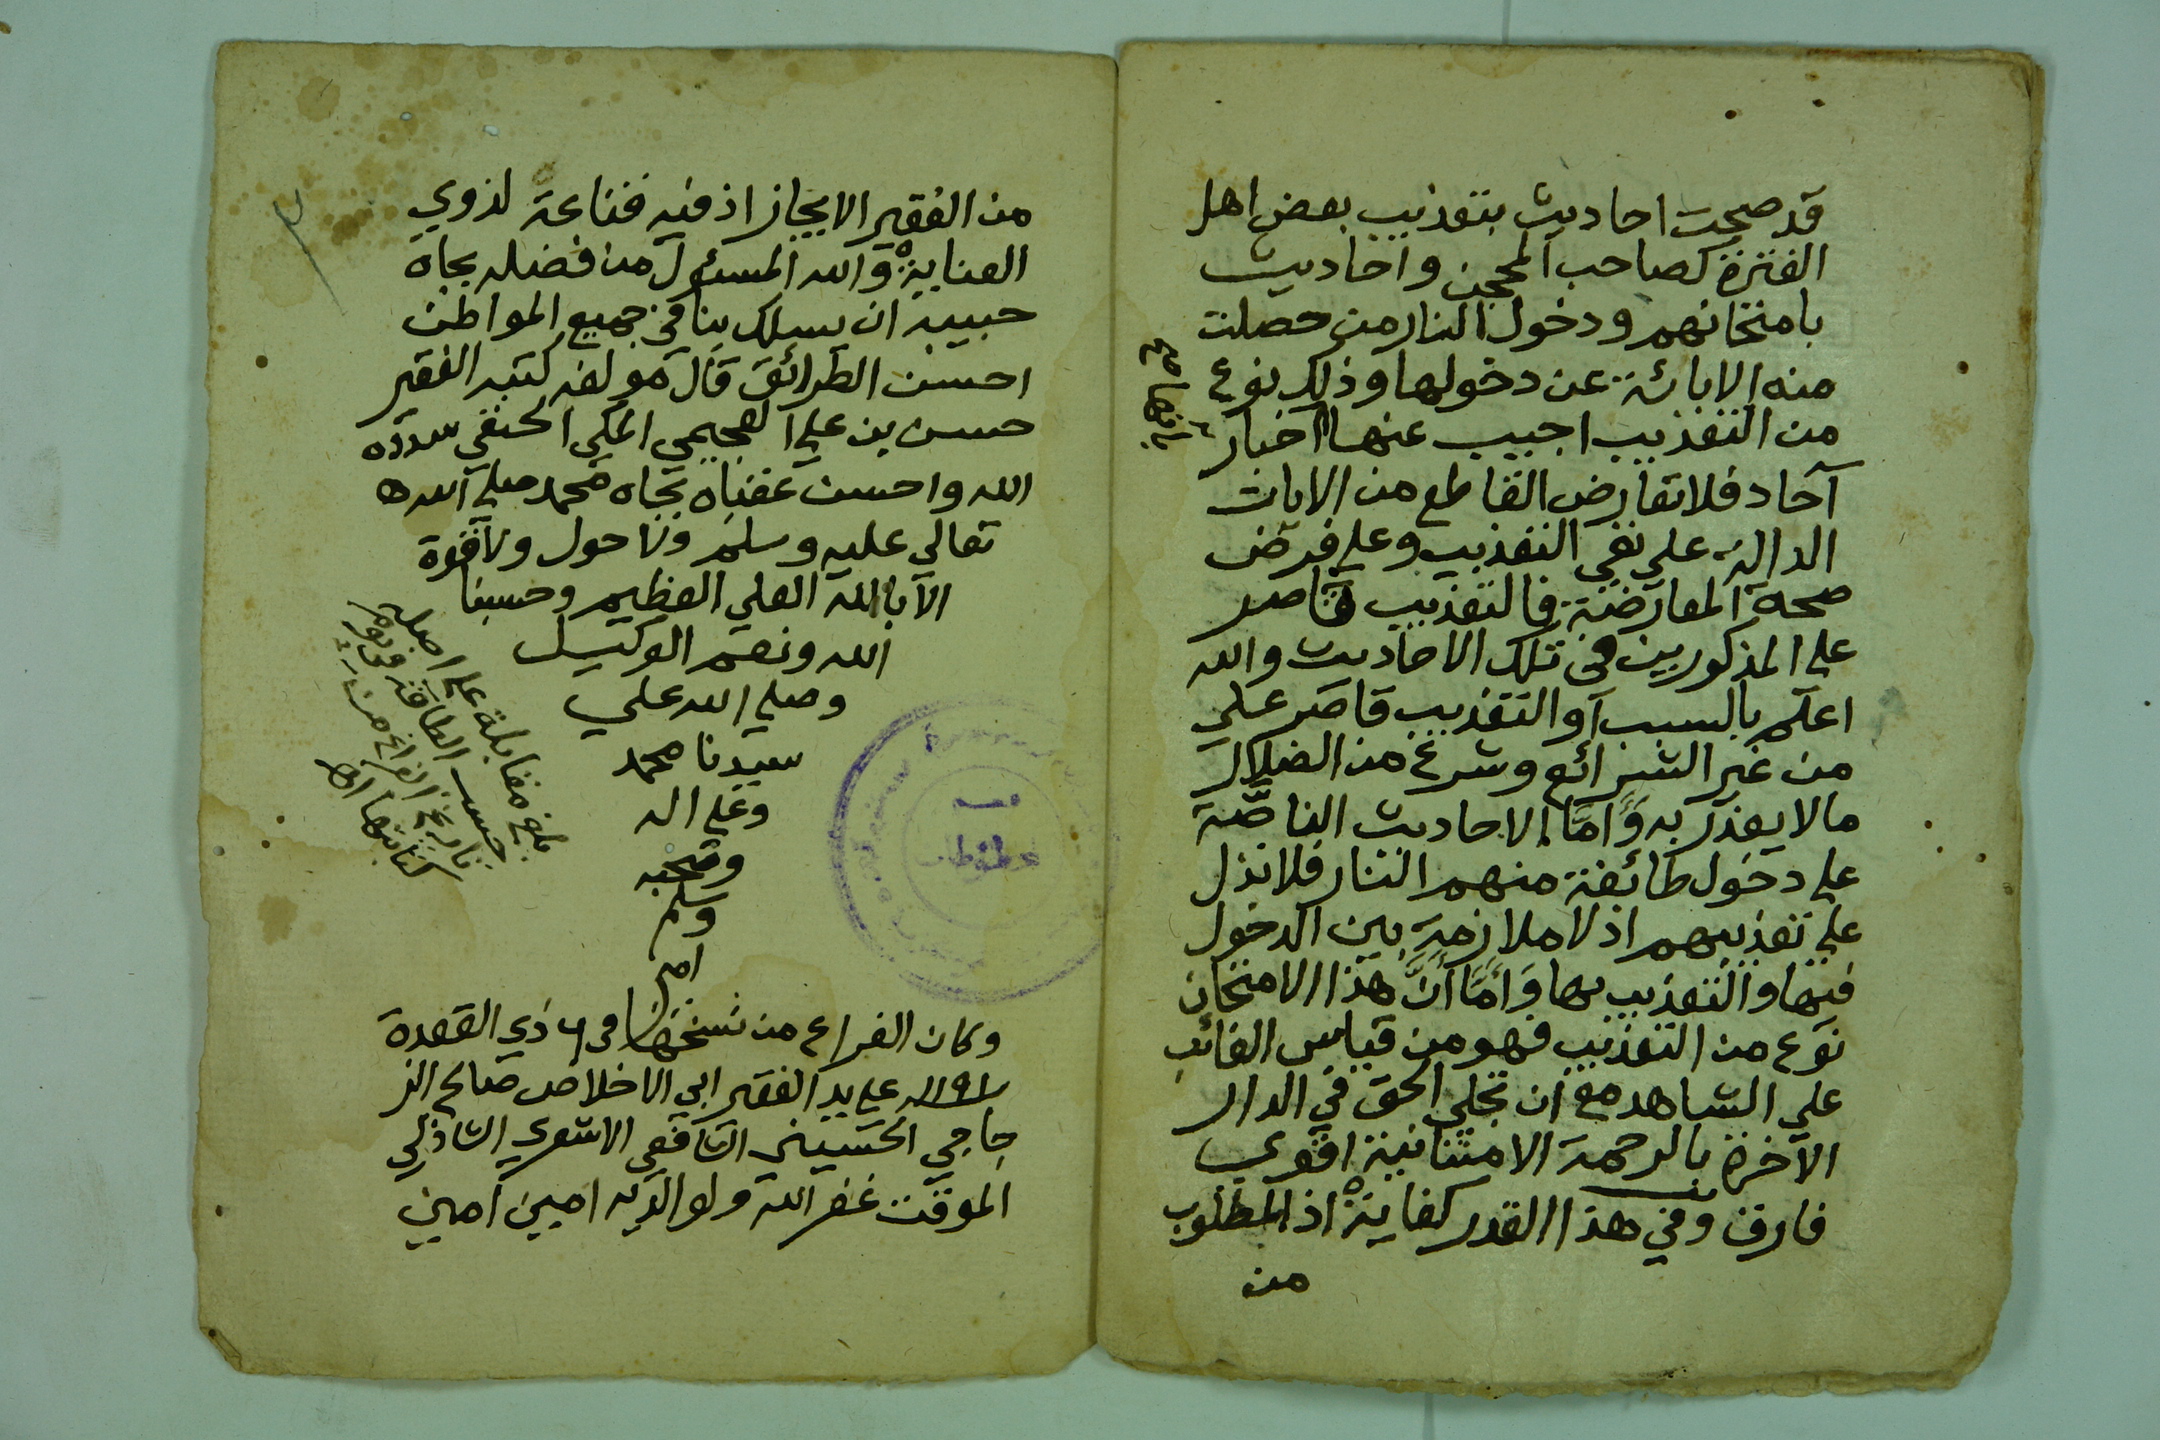 قد صحت احاديث بتعذيب بعض اهل
الفترة كصاحب المحجن واحاديث
بامتحانهم ودخول النار من حصلت
منه الاباءة عن دخولها وذلك نوع
من التعذيب اجيب عنها اخبار
آحاد فلا تعارض القاطع من الايات
الدالة على نفي التعذيب وعلى فرض
صحة المعارضة فالتعذيب قاصر
على المذكورين في تلك الاحاديث والله
اعلم بالسبب او التعذيب قاصر على
من غير الشرائع وشرع من الضلال
ما لا يعذر به وَأمَّا الاحاديث الناصَّة
على دخول طائفة منهم النار فلا تدل
على تعذيبهم اذ لا ملازمة بين الدخول
فيها والتعذيب بها وَأمَّا أنَّ هذا الامتحان
نوع من التعذيب فهو من قياس الغائب
على الشاهد مع ان تجلي الحق في الدار
الآخرة بالرحمة الامتنانية اقوي
فارق وفي هذا القدر كفاية اذ المطلوب
من
من الفقير الايجاز اذ فيه قناعة لذوي
العناية والله المسئول من فضله بجاه
حبيبه ان يسلك بنا في جميع المواطن
احسن الطرائق قال مولفه كتبه الفقير
حسن بن علي العجيمي المكي الحنفي سدده
الله واحسن عقباه بجاه محمد صلى الله
تعالى عليه وسلم ولا حول ولا قوة
الا بالله العلي العظيم وحسبنا
الله ونعم الوكيل
وصلي الله علي
سيدنا محمد
وعلي اله
وصحبه
وسلم
امين
بلغ مقابلة على اصله
حسب الطاقة في يوم
تاريخ الفراغ من
كتابتها
وكان الفراغ من نسخها في ٦ ذي القعدة
١١٩٢ على يد الفقير ابي الاخلاص صالح الز
جاجي الحسيني الشافعي الاشعري الشاذلي
الموقت غفر الله ولوالديه امين امين